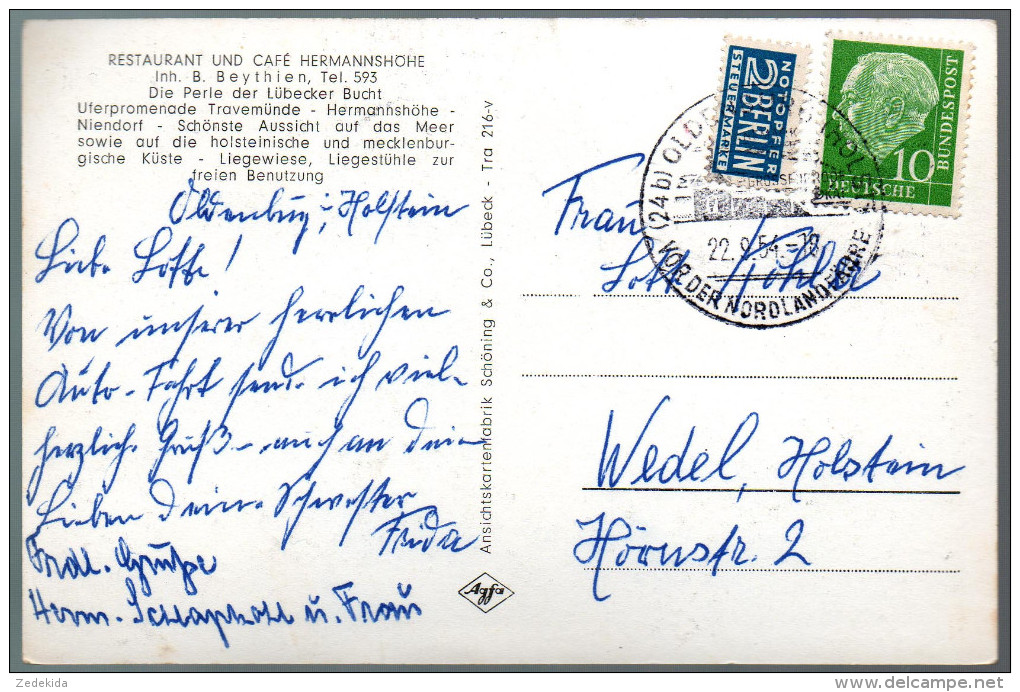 RESTAURANT UND CAFÉ HERMANNSHÖHE
Inh. B. Beythien, Tel. 593
Die Perle der Lübecker Bucht
Uferpromenade Travemünde - Hermannshöhe -
Niendorf - Schönste Aussicht auf das Meer
sowie auf die holsteinische und mecklenbur-
gische Küste - Liegewiese, Liegestühle zur
freien Benutzung
Oldenburg i. Holstein
Liebe Lotte!
Von unserer herrlichen
Auto-Fahrt sende ich viel-
herzliche Grüße auch an Dein
Lieben Deine Schwester
Frida
Frdl. Grüße
Herm. u. Frau
Ansichtskartenfabrik Schöning & Co., Lübeck - Tra 216-v
Agfa
NOTOPFER
2 BERLIN
STEUERMARKE
10
DEUTSCHE
BUNDESPOST
(24b) OLDENBURG
22.9.54.-
VOR DER NORDLANDFÄHRE
Frau
Lotte Köhler
Wedel, Holstein
Hörnstr. 2
Zedekida
delcampe.net